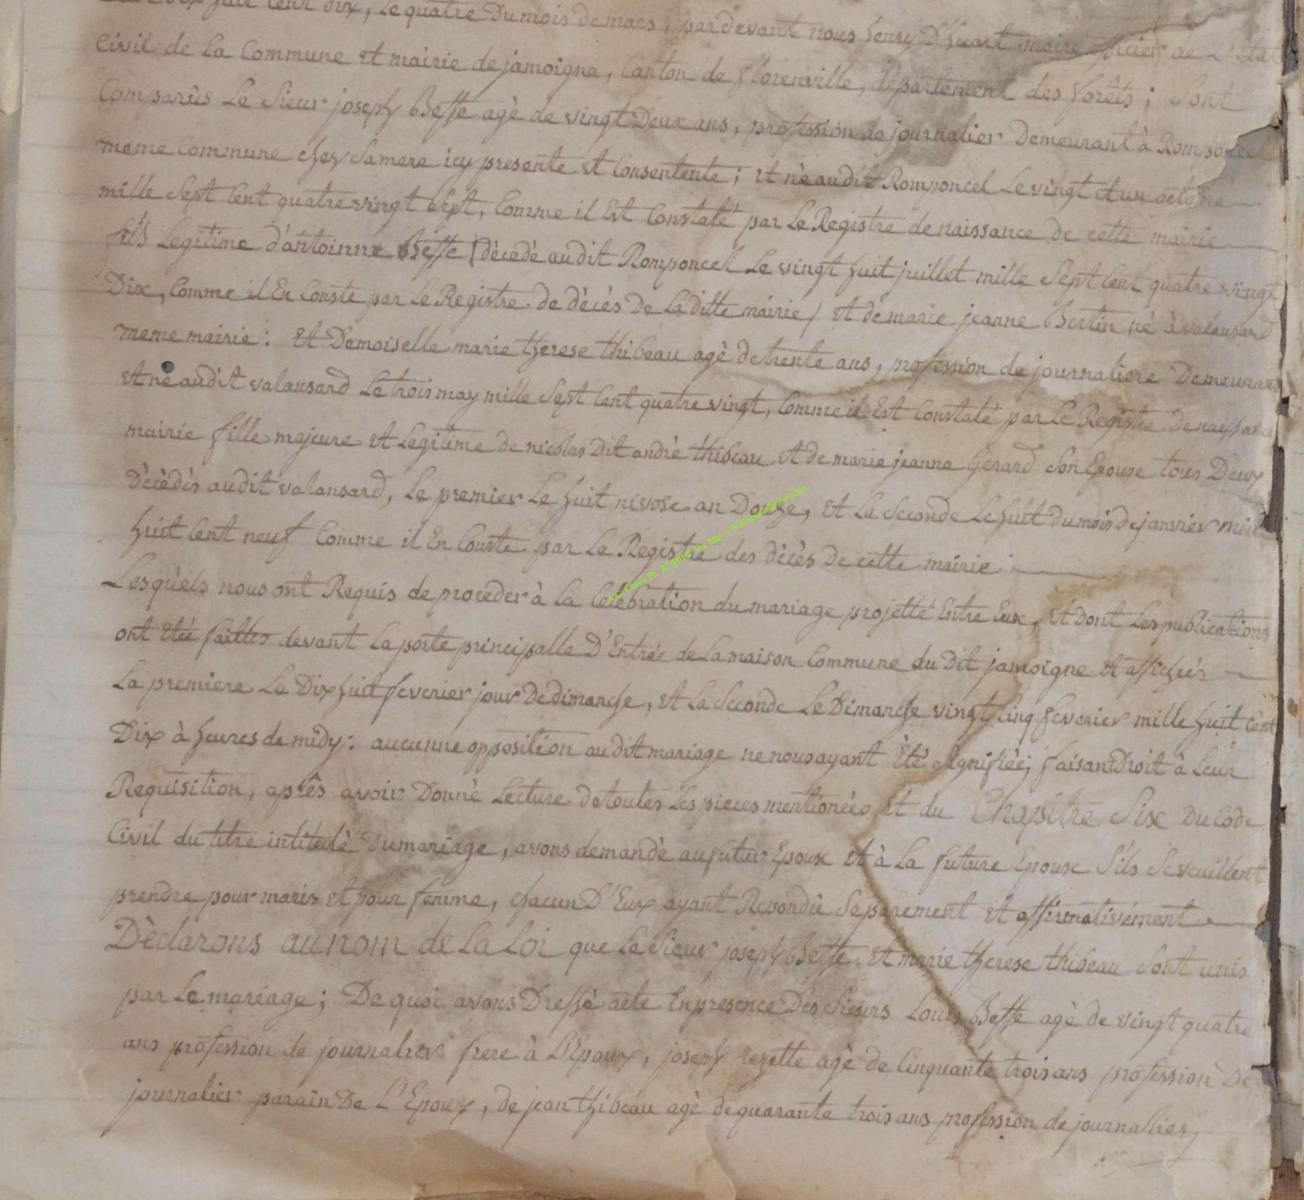 huit cent dix, le quatre du mois de mars, pardevant nous henry D'huart maire officier de L'Etat
Civil de la Commune et mairie de jamoigne, Canton de florenville, département des forêts; Sont
Comparûs Le Sieur joseph Besse agè de vingt Deux ans, profession de journalier Demeurant à Romponcel
meme Commune chez Samere icy presente et Consentente; et nè audit Romponcel Le vingt et un octobre
mille Sept Cent quatre vingt Sept, Comme il Est Constaté par Le Registre de naissance de cette mairie
fils Legitime d'antoinne Besse (décédé audit Romponcel Le vingt huit juillet mille Sept Cent quatre vingt
Dix, Comme il En Conste par Le Registre de dècès de Laditte mairie) et de marie jeanne Bertin né à valansard
meme mairie: Et Demoiselle marie therese thibeau agè de trente ans, profession de journaliere Demeurant
et nè audit valansard Le trois may mille Sept Cent quatre vingt, Comme il Est Constaté par Le Registre De naissance
mairie fille majeure et Legitime de nicolas Dit andré thibeau et de marie jeanne Gerard Son Epouse tous Deux
Dècèdès audit valansard, Le premier Le huit nivose an Douze, et La Seconde Le huit du mois de janvier mille
huit Cent neuf Comme il En Conste par Le Registre des dècès de cette mairie
Lesquels nous ont Requis de proceder à la Celebration du mariage projetté Entre Eux, et dont Les publications
ont Eté faittes devant La porte principalle D'Entrée de La maison Commune du Dit jamoigne et affichées
La premiere Le Dix huit feverier jour De dimanche, et La Seconde Le Dimanche vingt Cinq feverier mille huit Cent
Dix à heures de midy: aucunne opposition audit mariage ne nous ayant Eté Signifiée; faisant Droit à Leur
Requisition, après avoir Donné Lecture de toutes Les pieces mentionées et du Chapitre Six Du Code
Civil du titre intitulé Du mariage, avons demandé au futur Epoux et à La future Epouse S'ils Se veuillent
prendre pour maris et pour femme, chacun D'Eux ayant Repondù Separement et affirmativement
Dèclarons au nom de La Loi que Le Sieur joseph Besse et marie therese thibeau Sont unis
par Le mariage; De quoi avons Dressé acte En presence Des Sieurs Louis Besse agè de vingt quatre
ans profession de journalier frere à L'Epoux, joseph rezette agè de Cinquante trois ans profession De
journalier parain De L'Epoux, de jean thibeau agè de quarante trois ans profession de journalier